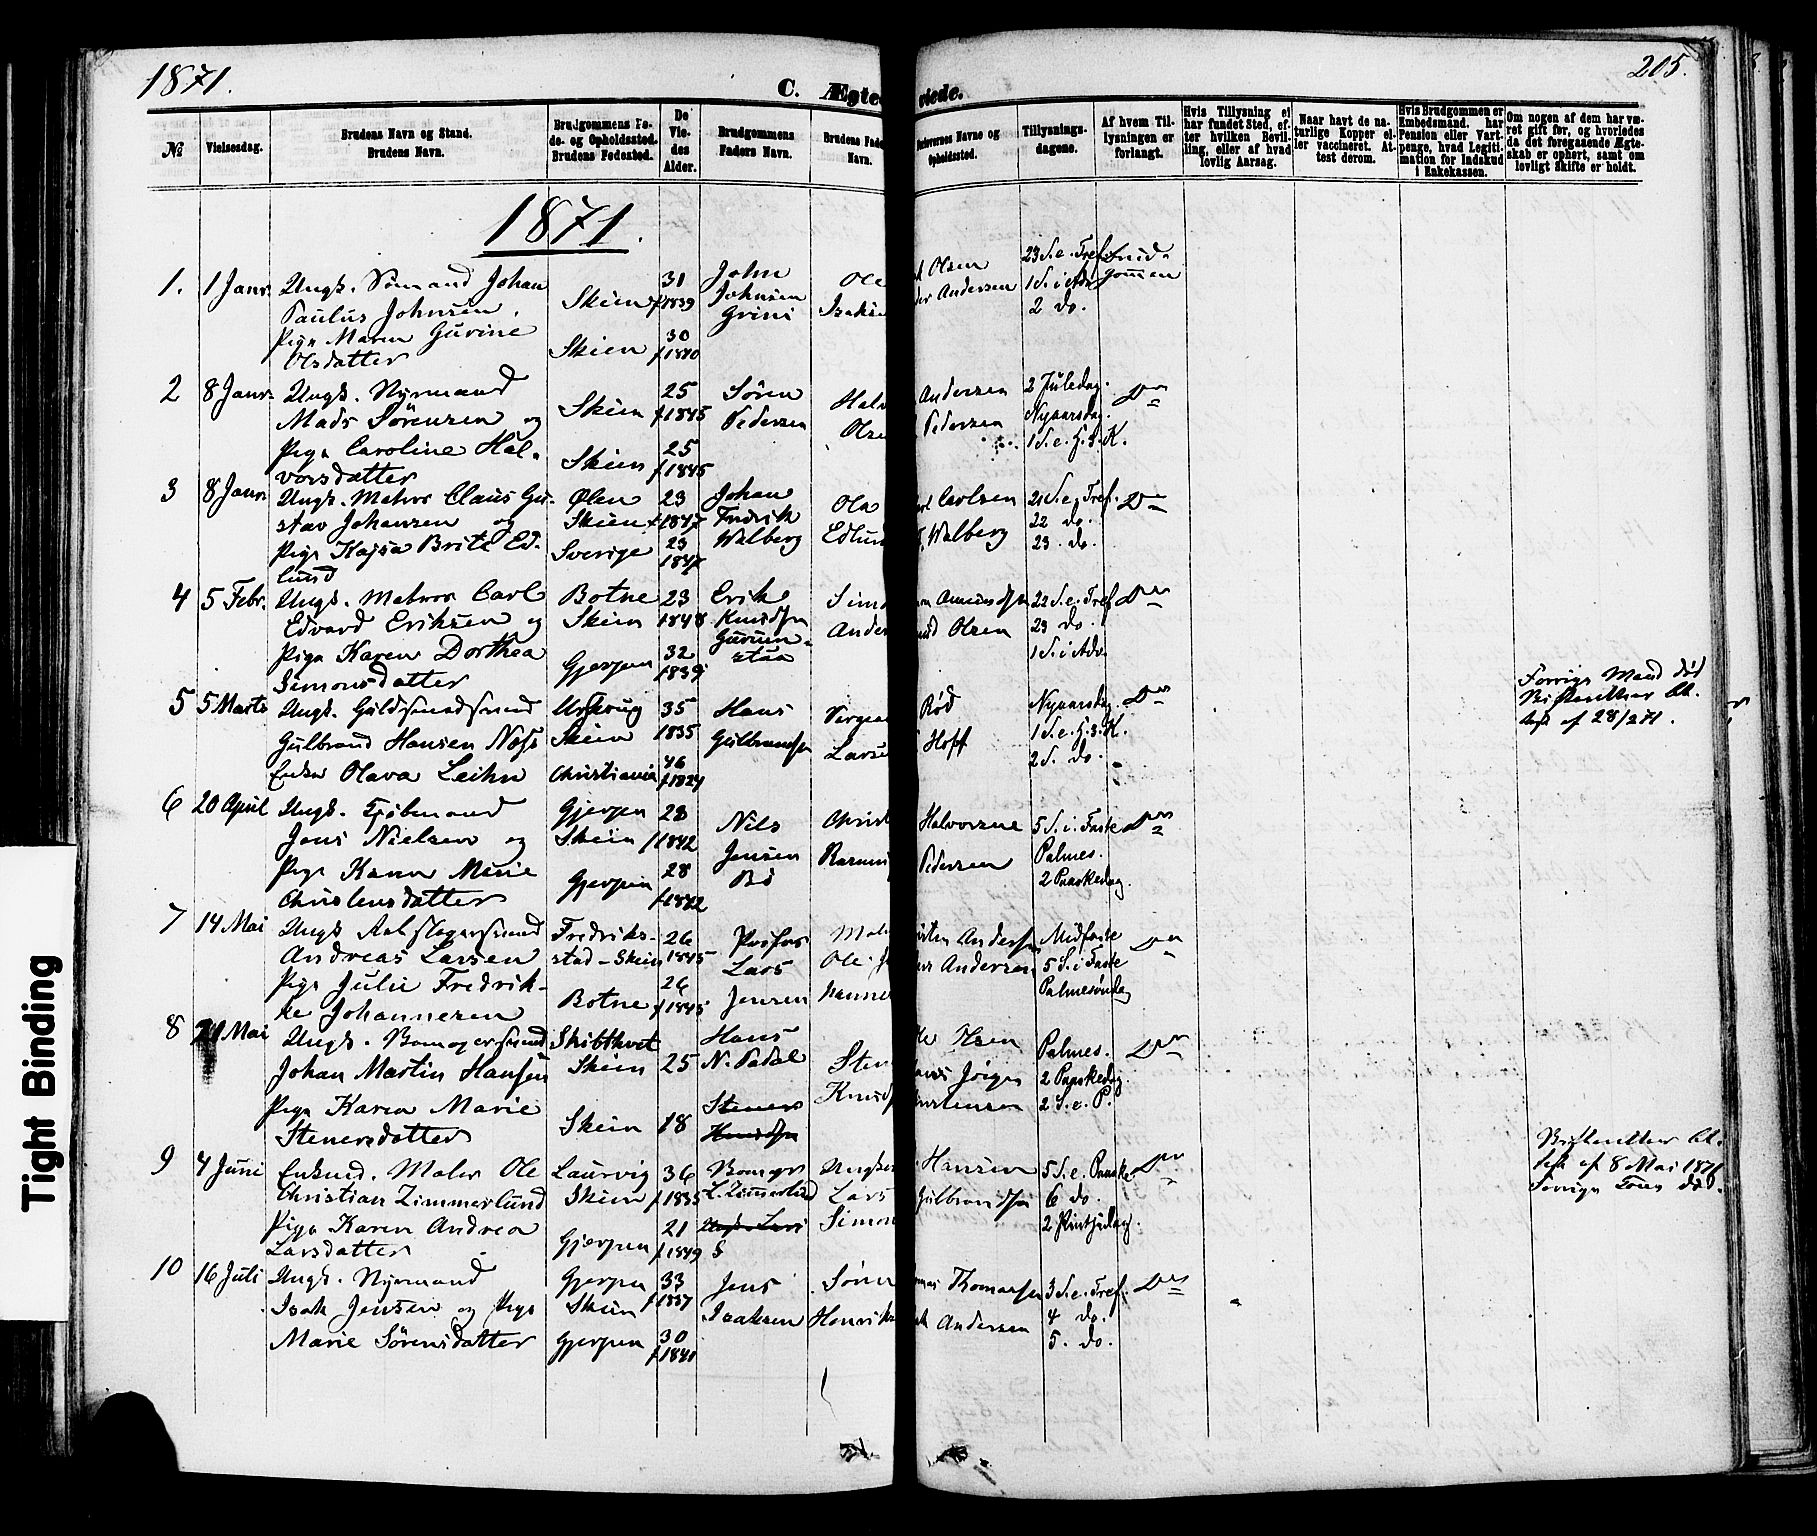 1871.
C. Ægte viede.
205.
№
Vielsesdag.
Brudens Navn og Stand.
Brudens Navn.
Brudgommens Fø-
de- og Opholdssted.
Brudens Fødested.
De
Vie-
des
Alder.
Brudgommens
Faders Navn.
Brudens Fade
Navn.
Forlovernes Navne og
Opholdssted.
Tillysnings-
dagene.
Af hvem Til-
lysningen er
forlangt.
Hvis Tillysning ej
har fundet Sted, ef-
ter hvilken Bevil-
ling, eller af hvad
lovlig Aarsag.
Naar havt de na-
turlige Kopper el-
ler vaccineret. At-
test derom.
Hvis Brudgommen er
Embedsmand, har
Pension eller Vart-
penge, hvad Legiti-
mation for Indskud
i Enkekassen.
Om nogen af dem har væ-
ret gift før, og hvorledes
da det foregaaende Ægte-
skab er ophørt, samt om
lovligt Skifte er holdt.
1871.
1. 1 Janr. Ungk. Sømand Johan
Paulus Johnsen
Pige Maren Gurine
Olsdatter
Skien 31 f 1839
Skien 30 f 1840
John
Johnsen
Grini
Ole
Isaksen
Olsen
Andersen
23 S. e. Tref.
1 S. i Adv.
2 do.
Brud-
gommen
2 8 Janr. Ungk. Nyrmand
Mads Sörensen og
Pige Caroline Hal-
vorsdatter
Skien 25 f 1845
Skien 25 f 1845
Søren
Pedersen
Halv
Olse
Andersen
Pedersen
2 Juledag.
Nyaarsdag.
1 S. e. H. 3. K.
Do
3 8 Janr. Ungk. Matros Claus Gu-
stav Johansen og
Pige Kajsa Brite Ed-
lund
Ølen
Skien 23 f 1847
Sverige 23 1847
Johan
Fredrik
Walberg
Ola
Edlund
Carlsen
Walberg
21 S. e. Tref.
22 do.
23. do.
Do
4 5 Febr. Ungk. Matros Carl
Edvard Eriksen og
Pige Karen Dorthea
Simonsdatter
Botne
Skien 23 1848
Gjerpen 32 1839
Erik
Knudsen
Simo
Ander
Amundsen
Olsen
22 S. e. Tref
23 do.
1 S. i Adv.
Do
5 5 Marts Ungk. Guldsmedsvend
Gulbrand Hansen Næss
Enke Olava Leihn
Urskoug
Skien 35 1835
Christiania 46 f 1824
Hans
Gulbrandsen
Larse
Rød
Hoff
Nyaarsdag.
1 S. e. H. 3. K.
2 S. do.
Do
Forrige Mand død
Skifteretten
af 28/2 71.
6 20 April Ungk. Sjömand
Jens Nielsen og
Pige Karen Marie
Christensdatter
Gjerpen
Skien 28 f 1842
Gjerpen 28 f 1842
Nils
Jensen
Bö
Christ
Rasmus
Halvorsen
Pedersen
5 S. i Faste
Palmes.
2 Paaskedag.
Do
7 14 Mai Ungk.
Andreas Larsen
Pige Julie Fredrik-
ke Johannesen
Fredriks-
stad - Skien 26 1845
Botne 26 f 1845
Lars
Jensen
Ole Jo
hannes
Andersen
Andersen
Midfaste
5 S. i Faste
Palmesöndag
Do
8 21 Mai Ungk.
Johan Martin Hansen
Pige Karen Marie
Stenersdatter
Skibthvet
Skien 25
Skien 18
Hans
Steners
Knudsen
Sten
Knuds
Olsen
Jörgen
Christensen
Palmes.
2 Paaskedag.
2 S. e. P.
Do
9 4 Juni Enkmd. Maler Ole
Christian Zimmerlund
Pige Karen Andrea
Larsdatter
Laurvig
Skien 36 f 1835
Gjerpen 21 f 1849
L. Zimmerlund
Lars
Simon
Hansen
Gulbrandsen
5 S. e. Paaske
6 do.
2 Pintsedag.
Do
Skifteretten
af 8 Mai 1871
Forrige Kone død.
10 16 Juli Ungk. Nyrmand
Isak Jensen og Pige
Marie Sörensdatter
Gjerpen
Skien 33 f 1837
Gjerpen 30 f 1841
Jens
Isaksen
Søren
Henriks
Thomassen
Andersen
3 S. e. Tref.
4 do.
5. do.
Do
Tight Binding